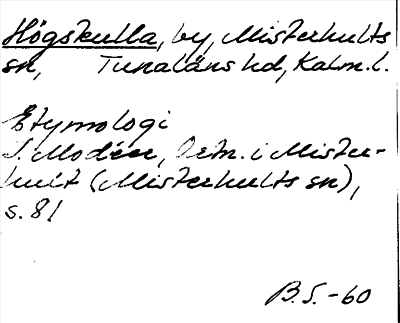 Högskulla, by, Misterhults
sn, Tunaläns hd, Kalm. l.
Etymologi
I. Modéer, Ortn. i Mister-
hult (Misterhults sn),
s. 81
B.S.-60